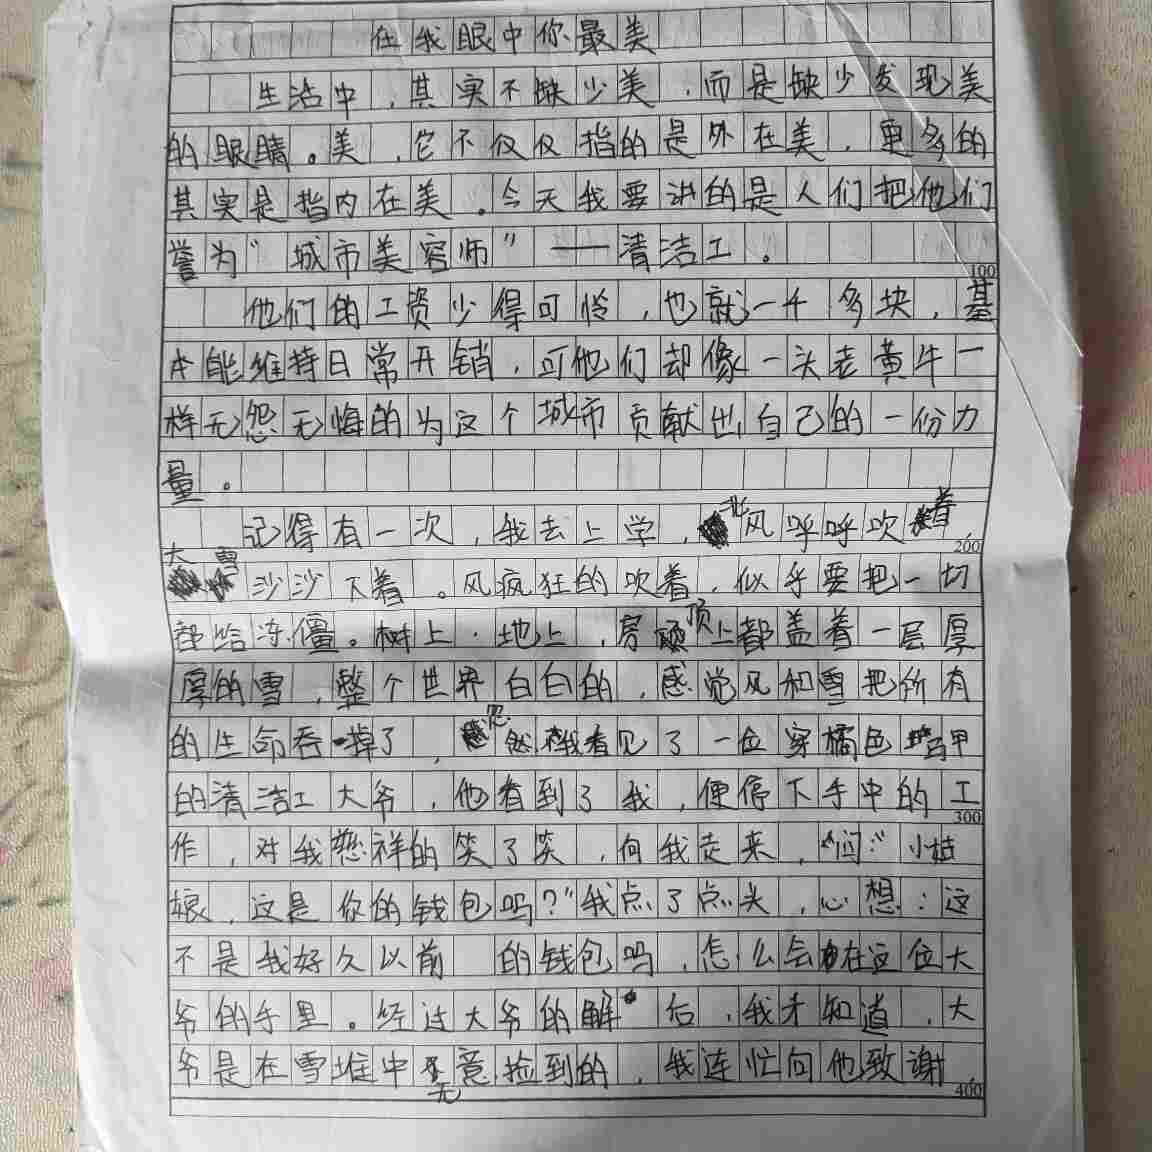 在我眼中你最美
生活中，其实不缺少美，而是缺少发现美
的眼睛。美，它不仅仅指的是外在美，更多的
其实是指内在美。今天我要讲的是人们把他们
誉为“城市美容师”——清洁工。
100
他们的工资少得可怜，也就一千多块，基
本能维持日常开销，可他们却像一头老黄牛一
样无怨无悔的为这个城市贡献出自己的一份力
量。
记得有一次，我去上学，北风呼呼吹着，
200
大雪沙沙下着。风疯狂的吹着，似乎要把一切
都给冻僵。树上，地上，房顶上都盖着一层厚
厚的雪，整个世界白白的，感觉风和雪把所有
的生命吞掉了，忽然我看见了一位穿橘色马甲
的清洁工大爷，他看到了我，便停下手中的工
300
作，对我慈祥的笑了笑，向我走来，问：“小姑
娘，这是你的钱包吗？”我点了点头，心想：这
不是我好久以前的钱包吗，怎么会在这位大
爷的手里。经过大爷的解后，我才知道，大
爷是在雪堆中无意捡到的，我连忙向他致谢，
400